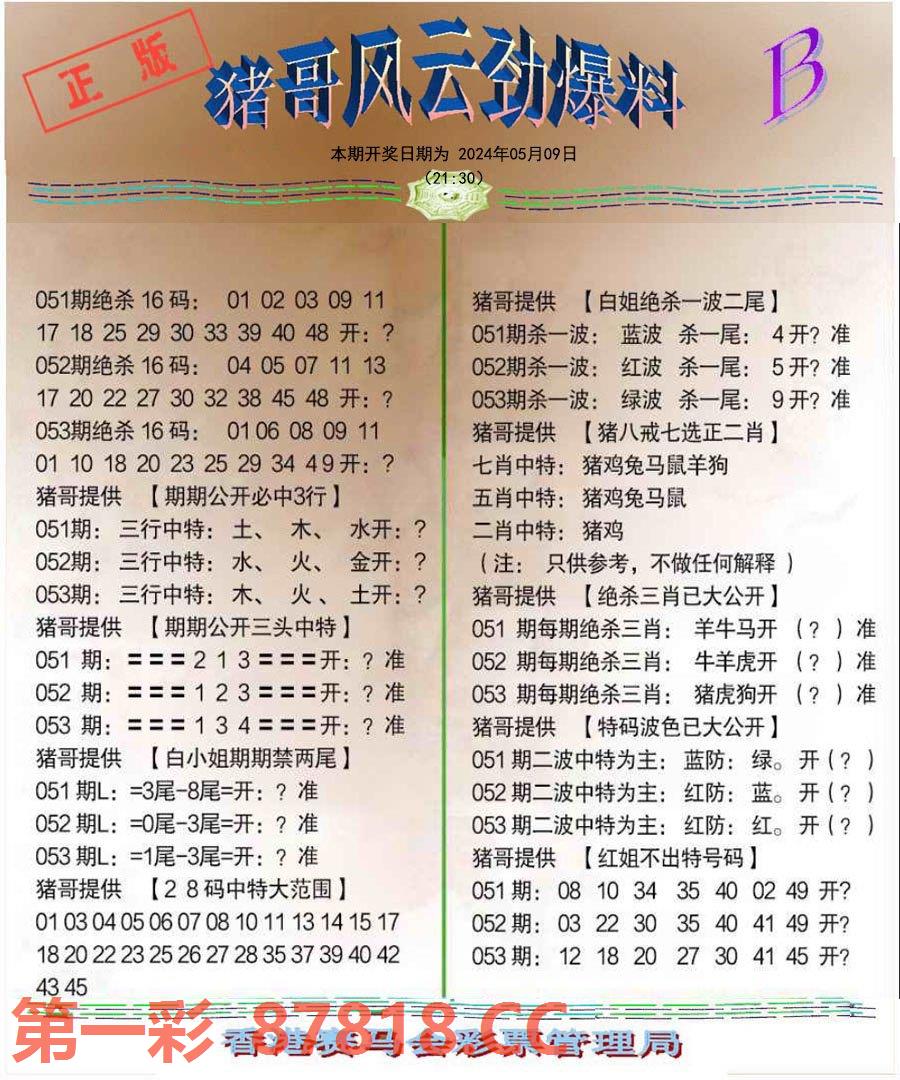 正版
猪哥风云劲爆料
B
本期开奖日期为 2024年05月09日
(21:30)
051期绝杀 16 码： 01 02 03 09 11
17 18 25 29 30 33 39 40 48 开：?
052期绝杀 16 码： 04 05 07 11 13
17 20 22 27 30 32 38 45 48 开：?
053期绝杀 16 码： 01 06 08 09 11
01 10 18 20 23 25 29 34 49开：?
猪哥提供 【期期公开必中3行】
051期： 三行中特： 土、 木、 水开：?
052期： 三行中特： 水、 火、 金开：?
053期： 三行中特： 木、 火 、 土开：?
猪哥提供 【期期公开三头中特】
051 期：〓〓〓 2 1 3 〓〓〓开：? 准
052 期：〓〓〓 1 2 3 〓〓〓开：? 准
053 期：〓〓〓 1 3 4 〓〓〓开：? 准
猪哥提供 【白小姐期期禁两尾】
051 期L：=3尾-8尾=开：? 准
052 期L：=0尾-3尾=开：? 准
053 期L：=1尾-3尾=开：? 准
猪哥提供 【２８码中特大范围】
01 03 04 05 06 07 08 10 11 13 14 15 17
18 20 22 23 25 26 27 28 35 37 39 40 42
43 45
猪哥提供 【白姐绝杀一波二尾】
051期杀一波： 蓝波 杀一尾： 4 开? 准
052期杀一波： 红波 杀一尾： 5 开? 准
053期杀一波： 绿波 杀一尾： 9 开? 准
猪哥提供 【猪八戒七选正二肖】
七肖中特： 猪鸡兔马鼠羊狗
五肖中特： 猪鸡兔马鼠
二肖中特： 猪鸡
（注： 只供参考，不做任何解释 ）
猪哥提供 【绝杀三肖已大公开】
051 期每期绝杀三肖： 羊牛马开 （? ）准
052 期每期绝杀三肖： 牛羊虎开 （? ）准
053 期每期绝杀三肖： 猪虎狗开 （? ）准
猪哥提供 【特码波色已大公开】
051 期二波中特为主： 蓝防： 绿。 开（? ）
052 期二波中特为主： 红防： 蓝。 开（? ）
053 期二波中特为主： 红防： 红。 开（? ）
猪哥提供 【红姐不出特号码】
051 期： 08 10 34 35 40 02 49 开?
052 期： 03 22 30 35 40 41 49 开?
053 期： 12 18 20 27 30 41 45 开?
第一彩 87818.CC
香港赛马会彩票管理局